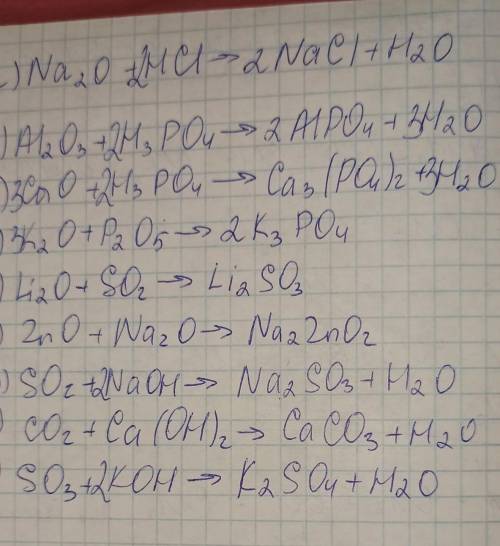 ) Na2O + 2HCl → 2NaCl + H2O
) Al2O3 + 2H3PO4 → 2AlPO4 + 3H2O
) 3CaO + 2H3PO4 → Ca3(PO4)2 + 3H2O
) 3K2O + P2O5 → 2K3PO4
) Li2O + SO2 → Li2SO3
) ZnO + Na2O → Na2ZnO2
) SO2 + 2NaOH → Na2SO3 + H2O
) CO2 + Ca(OH)2 → CaCO3 + H2O
) SO3 + 2KOH → K2SO4 + H2O